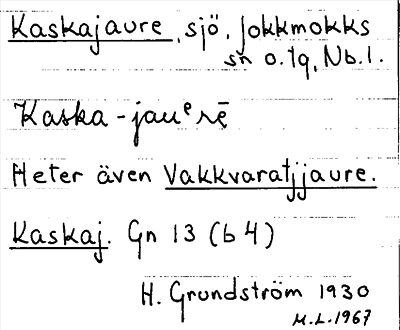 Kaskajaure, sjö, Jokkmokks
sn o. tg, Nb. l.
Kaska-jauᵉrē
Heter även Vakkvaratjjaure.
Kaskaj. Gn 13 (b 4)
H. Grundström 1930
M.L. 1967